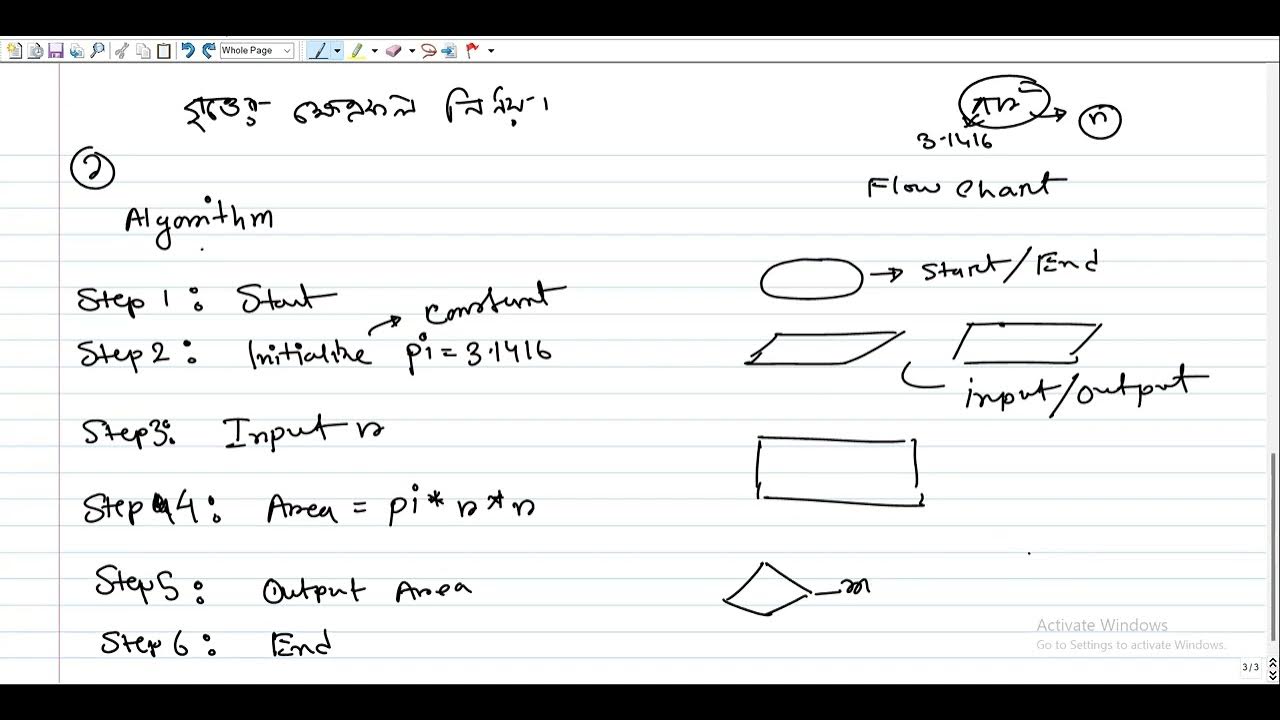 Whole Page
বৃত্তের ক্ষেত্রফল নির্ণয়।
πr²
3.1416
r
2
Flow chart
Algorithm
Start/End
Step 1: Start
constant
Step 2: Initialize pi = 3.1416
input/output
Step3: Input r
Step 4: Area = pi * r * r
Step5: Output Area
Step 6: End
Activate Windows
Go to Settings to activate Windows.
3/3